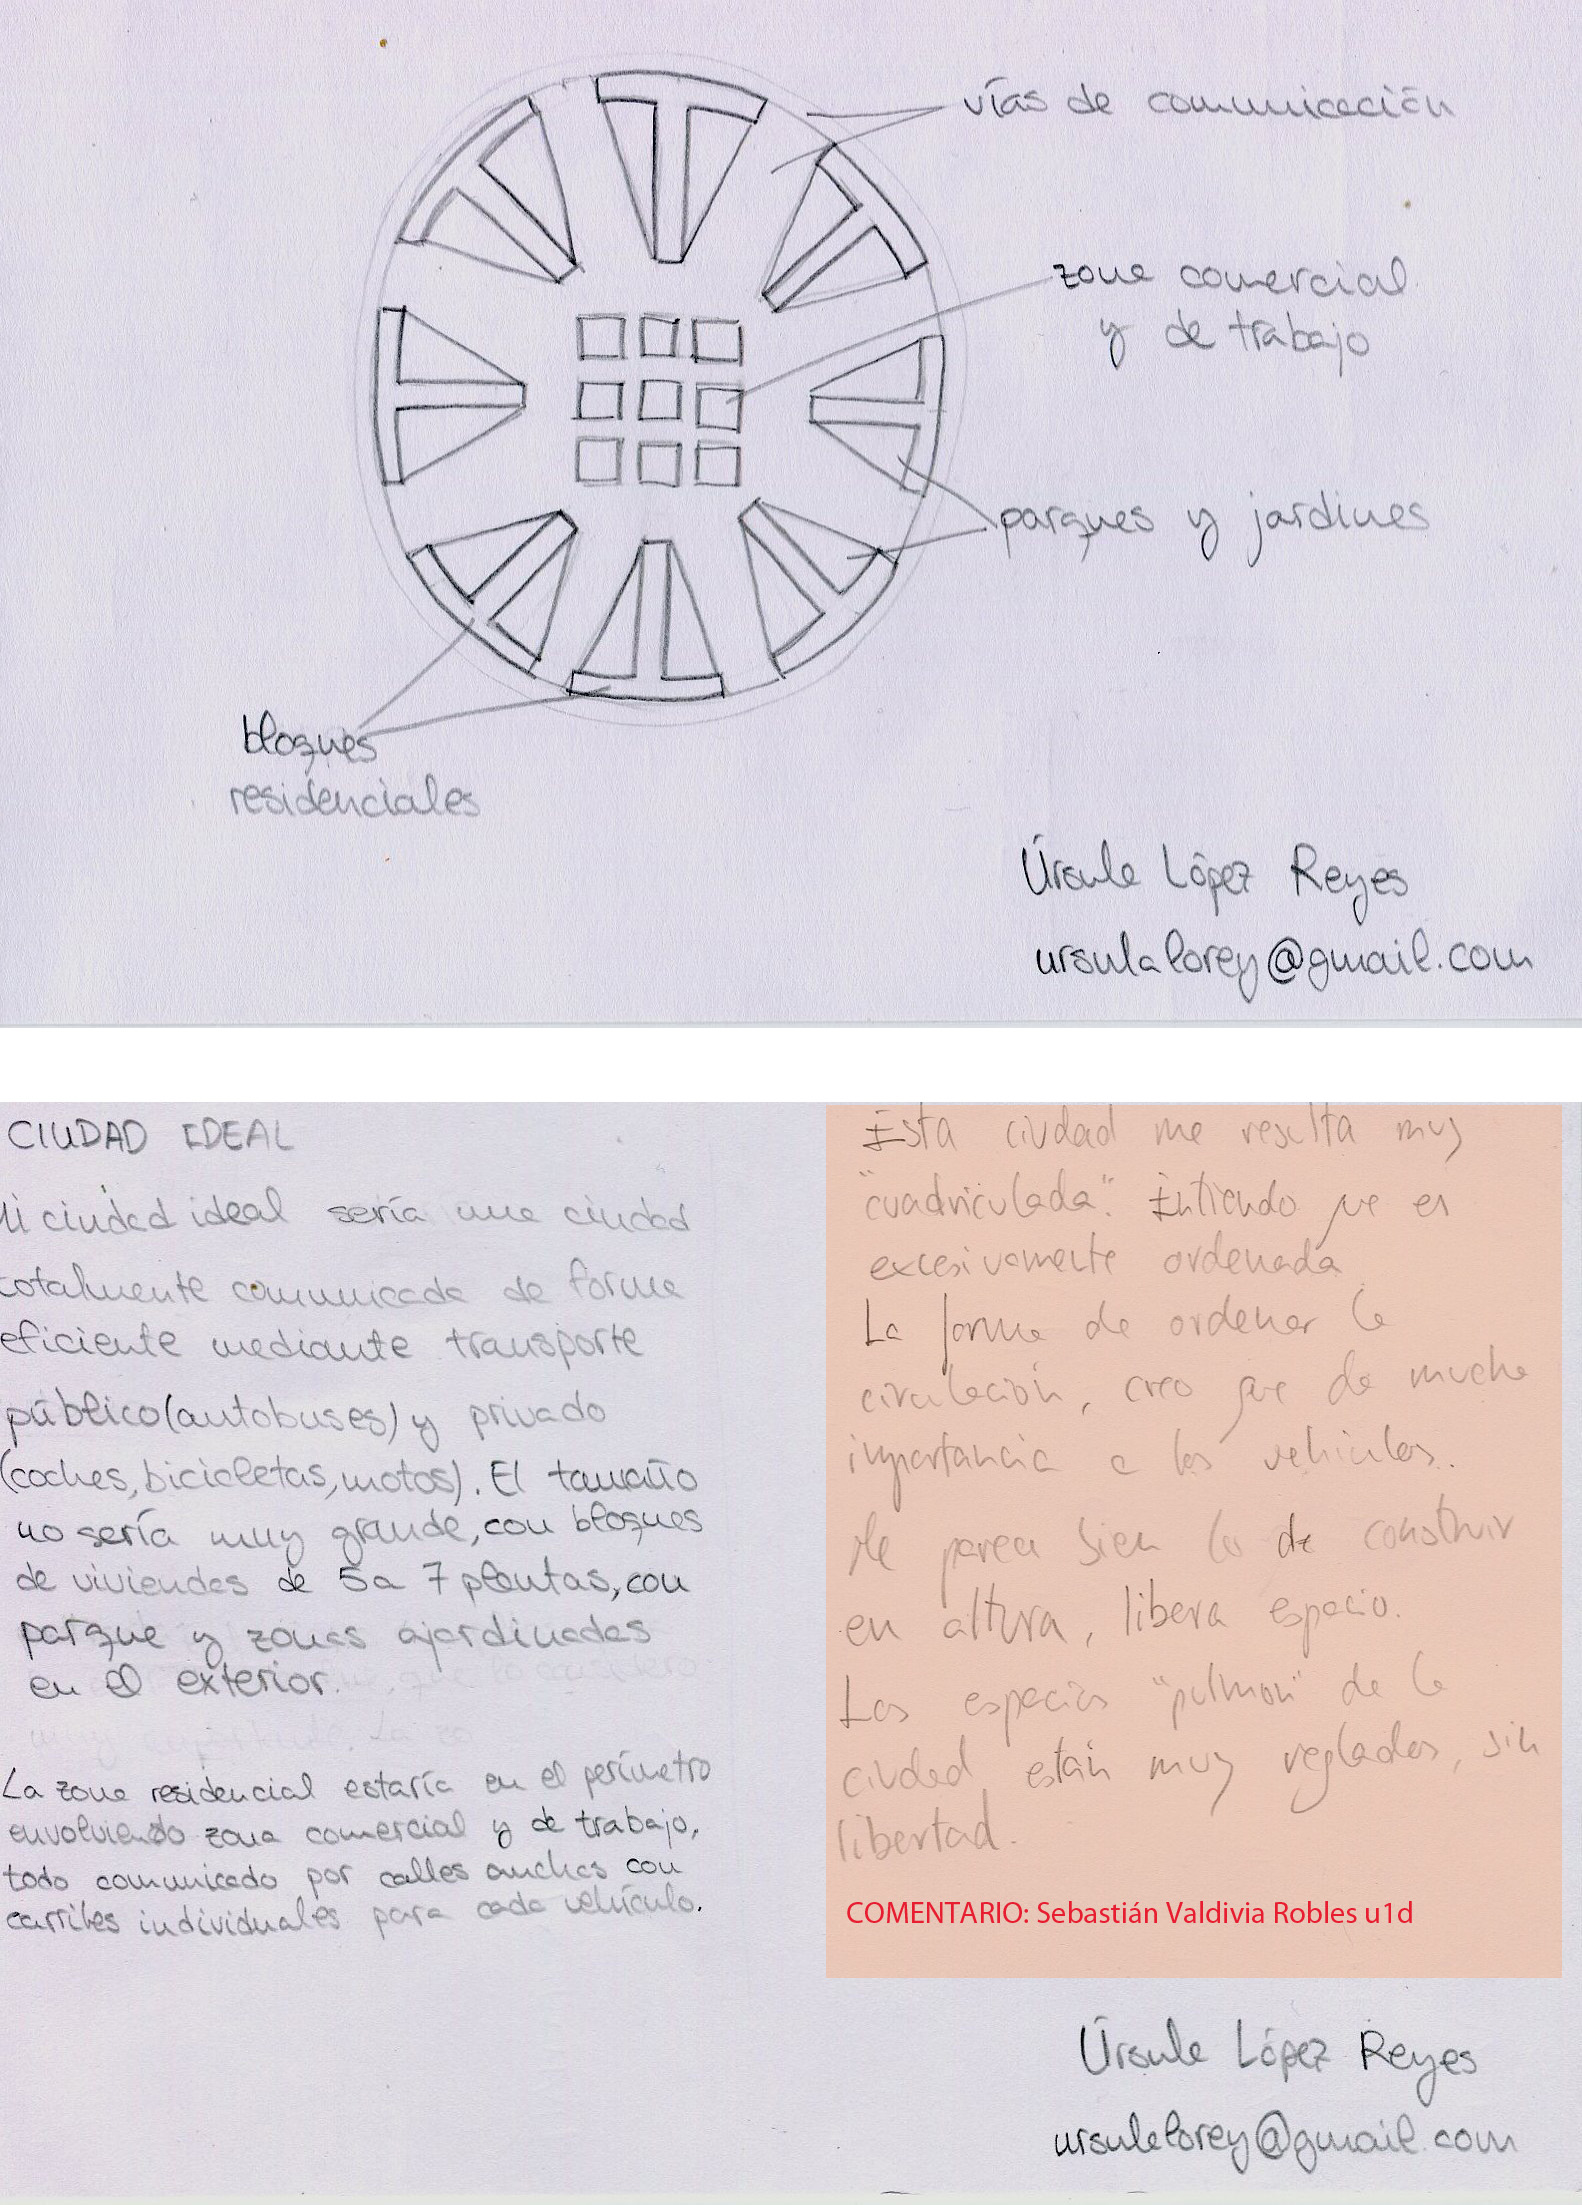 vías de comunicación
zona comercial
y de trabajo
parques y jardines
bloques
residenciales
Úrsula López Reyes
ursulalorey@gmail.com
CIUDAD IDEAL
Mi ciudad ideal sería una ciudad
totalmente comunicada de forma
eficiente mediante transporte
público(autobuses) y privado
(coches, bicicletas, motos). El tamaño
no sería muy grande, con bloques
de viviendas de 5 a 7 plantas, con
parque y zonas ajardinadas
en el exterior.
La zona residencial estaría en el perímetro
envolviendo zona comercial y de trabajo,
todo comunicado por calles anchas con
carriles individuales para cada vehículo.
Esta ciudad me resulta muy
"cuadriculada". Entiendo que es
excesivamente ordenada
La forma de ordenar la
circulación, creo que da mucha
importancia a los vehículos.
Me parece bien lo de construir
en altura, libera espacio.
Los espacios "pulmon" de la
ciudad están muy reglados, sin
libertad.
COMENTARIO: Sebastián Valdivia Robles u1d
Úrsula López Reyes
ursulalorey@gmail.com